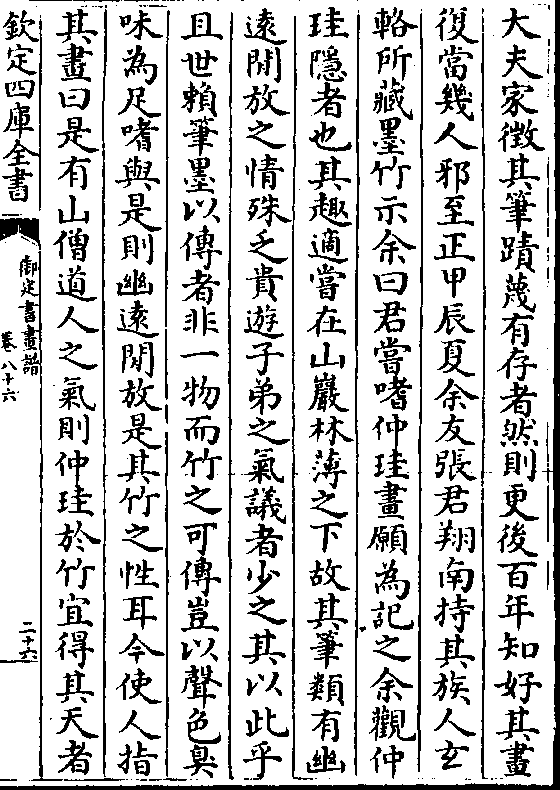 大夫家徴其筆蹟蔑有存者然則更後百年知好其畫
復當幾人邪至正甲辰夏余友張君翔南持其族人玄
輅所藏墨竹示余曰君嘗嗜仲珪畫願為記之余觀仲
珪隱者也其趣適嘗在山巖林薄之下故其筆類有幽
遠閒放之情殊乏貴遊子弟之氣議者少之其以此乎
且世賴筆墨以傳者非一物而竹之可傳豈以聲色臭
味為足嗜與是則幽遠閒放是其竹之性耳今使人指
其畫曰是有山僧道人之氣則仲珪於竹宜得其天者
欽定四庫全書
御定書畫譜
卷八十六
二十六